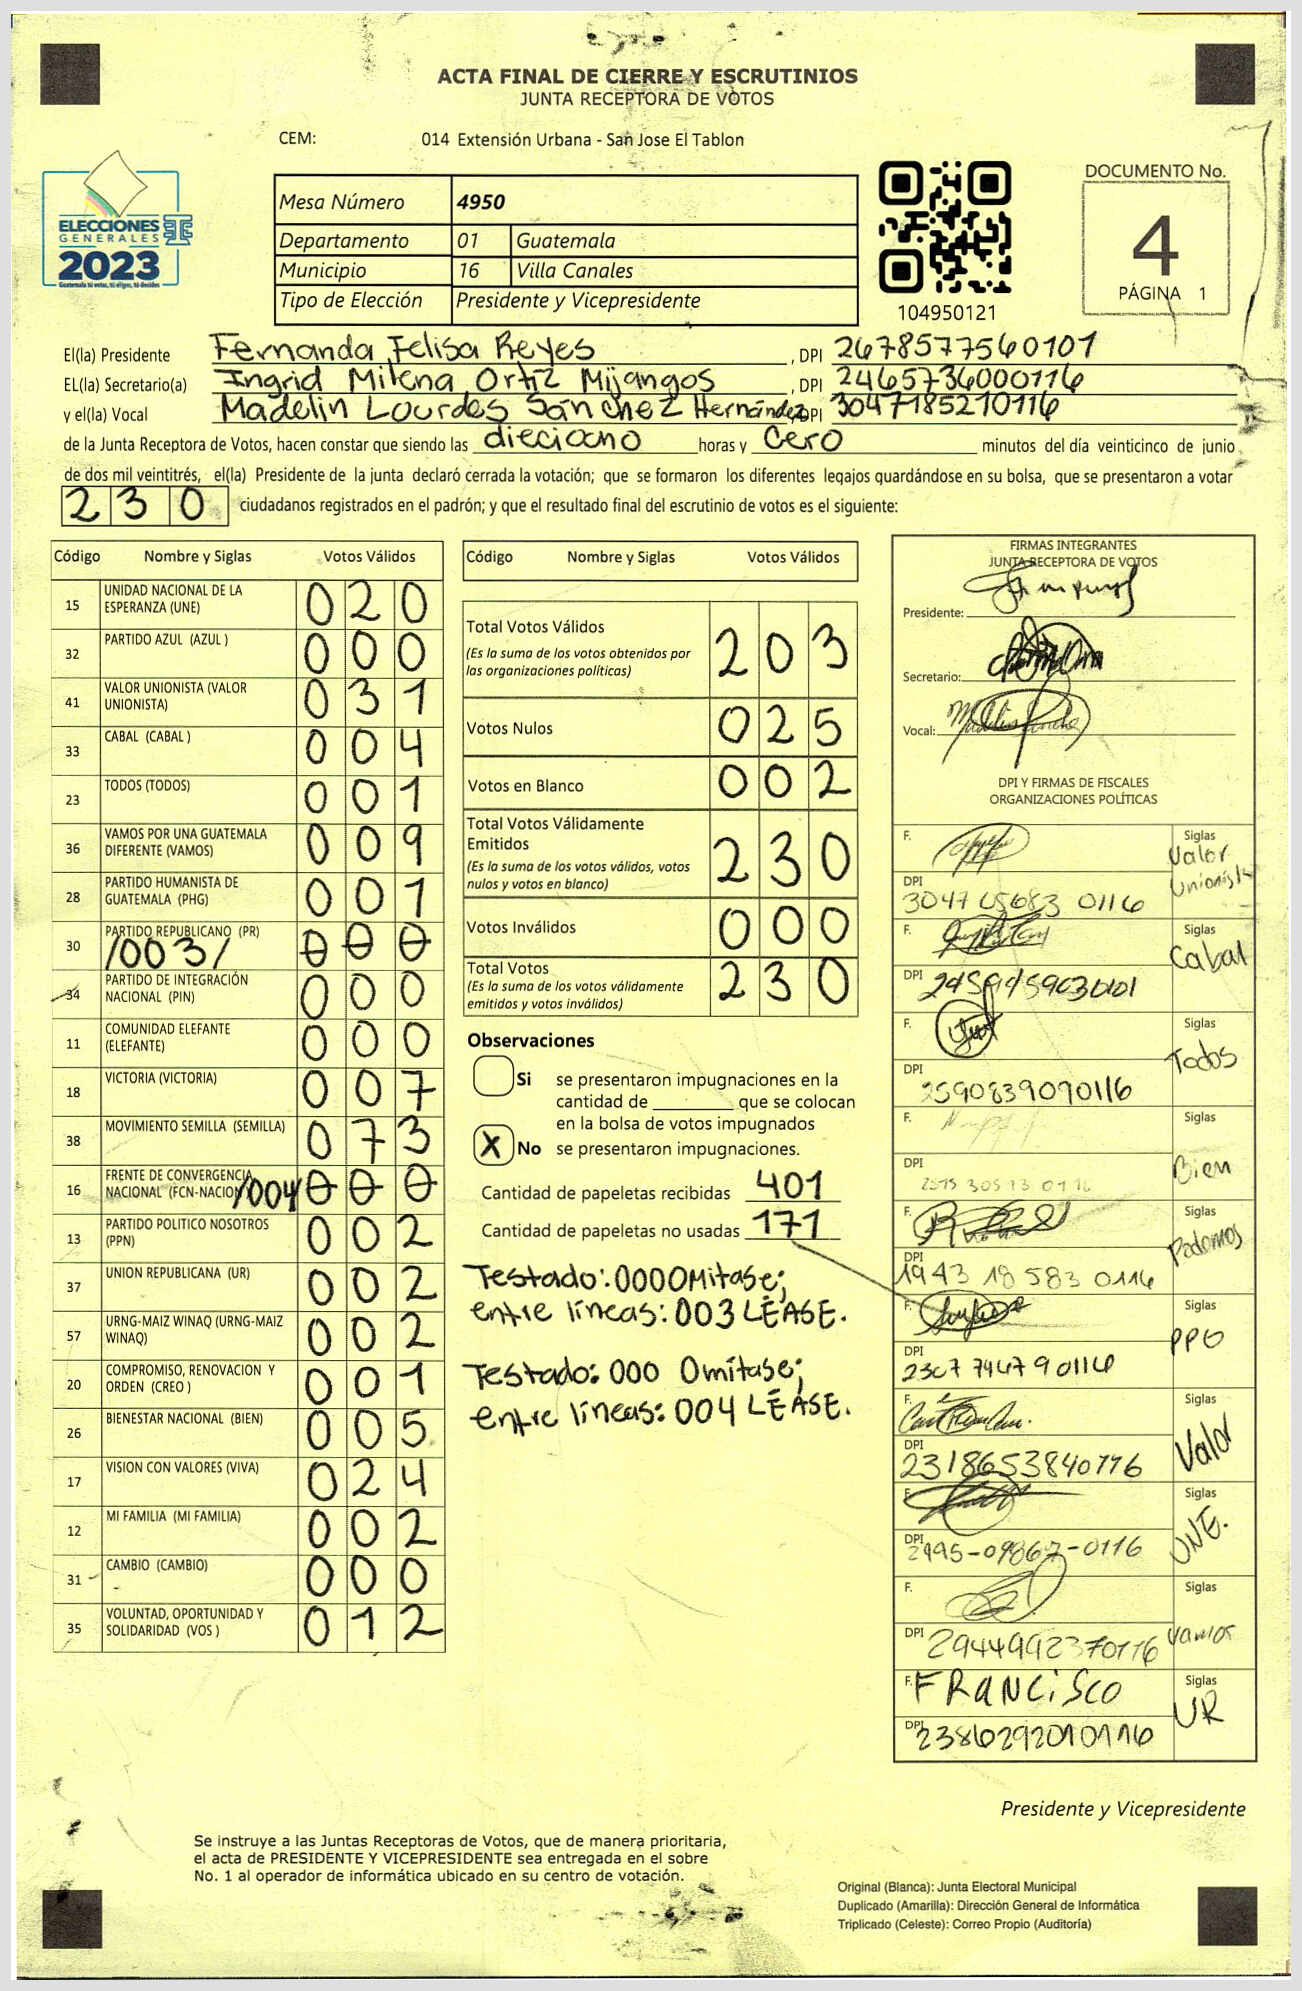 ACTA FINAL DE CIERRE Y ESCRUTINIOS
JUNTA RECEPTORA DE VOTOS
CEM: 014 Extensión Urbana - San Jose El Tablon
ELECCIONES
GENERALES
2023
Guatemala tú votas, tú eliges, tú decides
Mesa Número 4950
Departamento 01 Guatemala
Municipio 16 Villa Canales
Tipo de Elección Presidente y Vicepresidente
104950121
DOCUMENTO No.
4
PÁGINA 1
El(la) Presidente Fernanda Felisa Reyes , DPI 2678577560101
EL(la) Secretario(a) Ingrid Milena Ortiz Mijangos , DPI 2465736000116
y el(la) Vocal Madelin Lourdes Sánchez Hernández DPI 3047185210116
de la Junta Receptora de Votos, hacen constar que siendo las dieciocho horas y cero minutos del día veinticinco de junio
de dos mil veintitrés, el(la) Presidente de la junta declaró cerrada la votación; que se formaron los diferentes legajos guardándose en su bolsa, que se presentaron a votar
230 ciudadanos registrados en el padrón; y que el resultado final del escrutinio de votos es el siguiente:
Código Nombre y Siglas Votos Válidos
15 UNIDAD NACIONAL DE LA ESPERANZA (UNE) 020
32 PARTIDO AZUL (AZUL ) 000
41 VALOR UNIONISTA (VALOR UNIONISTA) 031
33 CABAL (CABAL ) 004
23 TODOS (TODOS) 001
36 VAMOS POR UNA GUATEMALA DIFERENTE (VAMOS) 009
28 PARTIDO HUMANISTA DE GUATEMALA (PHG) 001
30 PARTIDO REPUBLICANO (PR) /003/ 000
34 PARTIDO DE INTEGRACIÓN NACIONAL (PIN) 000
11 COMUNIDAD ELEFANTE (ELEFANTE) 000
18 VICTORIA (VICTORIA) 007
38 MOVIMIENTO SEMILLA (SEMILLA) 073
16 FRENTE DE CONVERGENCIA NACIONAL (FCN-NACION /004 000
13 PARTIDO POLITICO NOSOTROS (PPN) 002
37 UNION REPUBLICANA (UR) 002
57 URNG-MAIZ WINAQ (URNG-MAIZ WINAQ) 002
20 COMPROMISO, RENOVACION Y ORDEN (CREO ) 001
26 BIENESTAR NACIONAL (BIEN) 005
17 VISION CON VALORES (VIVA) 024
12 MI FAMILIA (MI FAMILIA) 002
31 CAMBIO (CAMBIO) 000
35 VOLUNTAD, OPORTUNIDAD Y SOLIDARIDAD (VOS ) 012
Código Nombre y Siglas Votos Válidos
Total Votos Válidos 203
(Es la suma de los votos obtenidos por
las organizaciones políticas)
Votos Nulos 025
Votos en Blanco 002
Total Votos Válidamente
Emitidos 230
(Es la suma de los votos válidos, votos
nulos y votos en blanco)
Votos Inválidos 000
Total Votos 230
(Es la suma de los votos válidamente
emitidos y votos inválidos)
Observaciones
Si se presentaron impugnaciones en la
cantidad de que se colocan
en la bolsa de votos impugnados
X No se presentaron impugnaciones.
Cantidad de papeletas recibidas 401
Cantidad de papeletas no usadas 171
Testado: 000 Omitase;
entre líneas: 003 LÉASE.
Testado: 000 Omítase;
entre líneas: 004 LÉASE.
FIRMAS INTEGRANTES
JUNTA RECEPTORA DE VOTOS
Presidente:
Secretario:
Vocal:
DPI Y FIRMAS DE FISCALES
ORGANIZACIONES POLÍTICAS
F. Siglas
Valor Unionista
DPI
F.
Cabal
DPI
F. Siglas
Todos
DPI 2590839090116
F. Siglas
Bien
DPI
F. Siglas
Podemos
DPI 1943 18 583 0116
F. Siglas
PPO
DPI 2307 7467 90116
F. Siglas
Valor
DPI 2318653840116
F. Siglas
UNE.
DPI 2995-09867-0116
F. Siglas
Vamos
DPI 2944992370116
F. FRANCISCO Siglas
UR
DPI 2386292010116
Presidente y Vicepresidente
Se instruye a las Juntas Receptoras de Votos, que de manera prioritaria,
el acta de PRESIDENTE Y VICEPRESIDENTE sea entregada en el sobre
No. 1 al operador de informática ubicado en su centro de votación.
Original (Blanca): Junta Electoral Municipal
Duplicado (Amarilla): Dirección General de Informática
Triplicado (Celeste): Correo Propio (Auditoría)